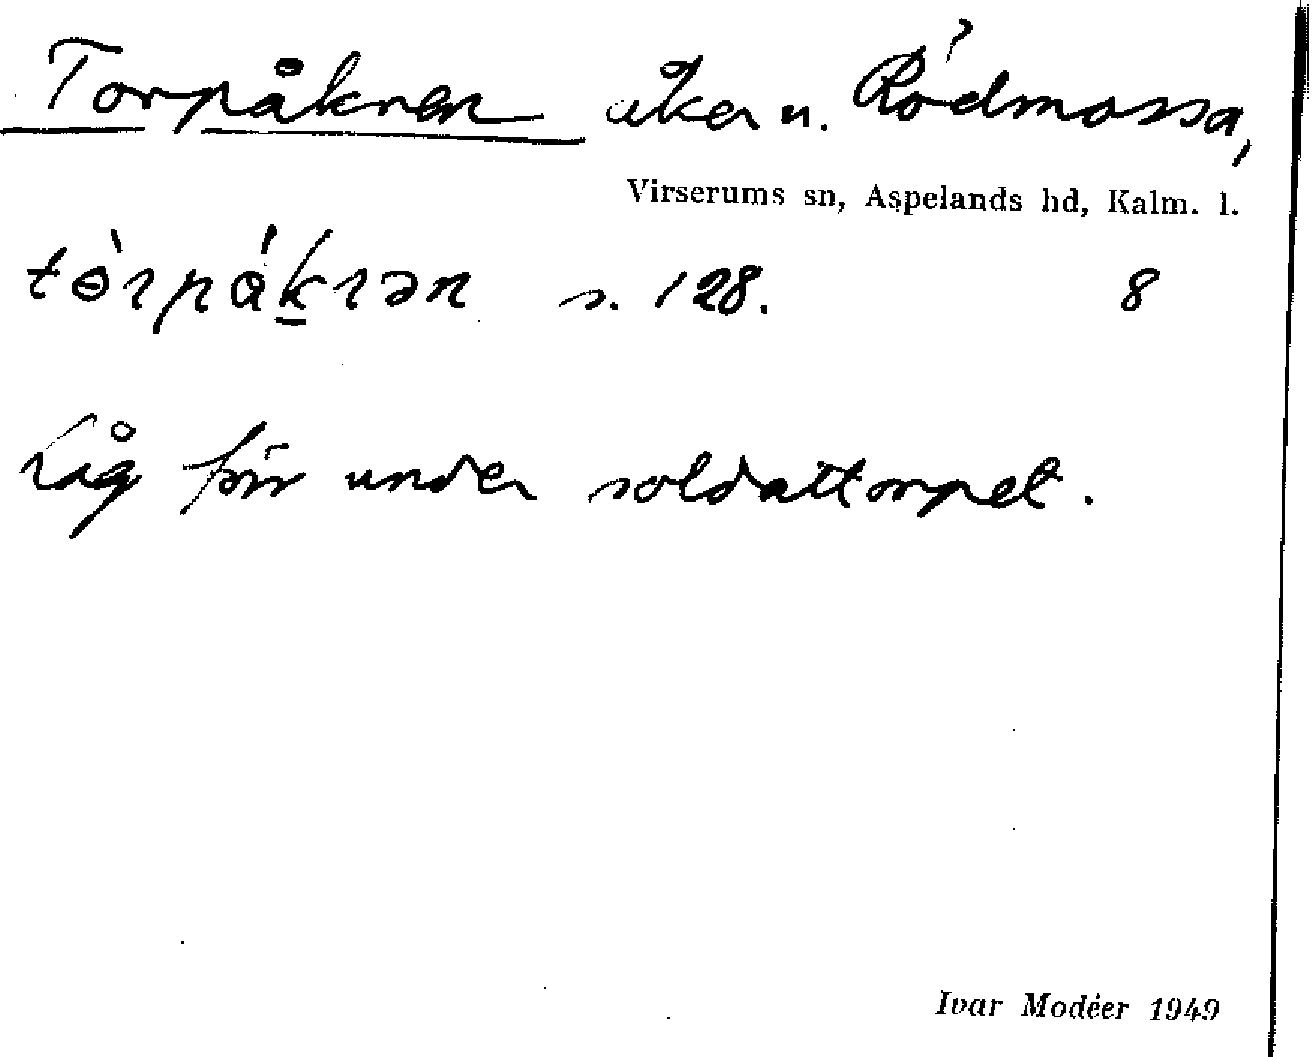 Torpåkren åker u. Rödmossa,
Virserums sn, Aspelands hd, Kalm. l.
tɵ̀rpákrən s. 128. 8
Låg förr under soldattorpet.
Ivar Modéer 1949